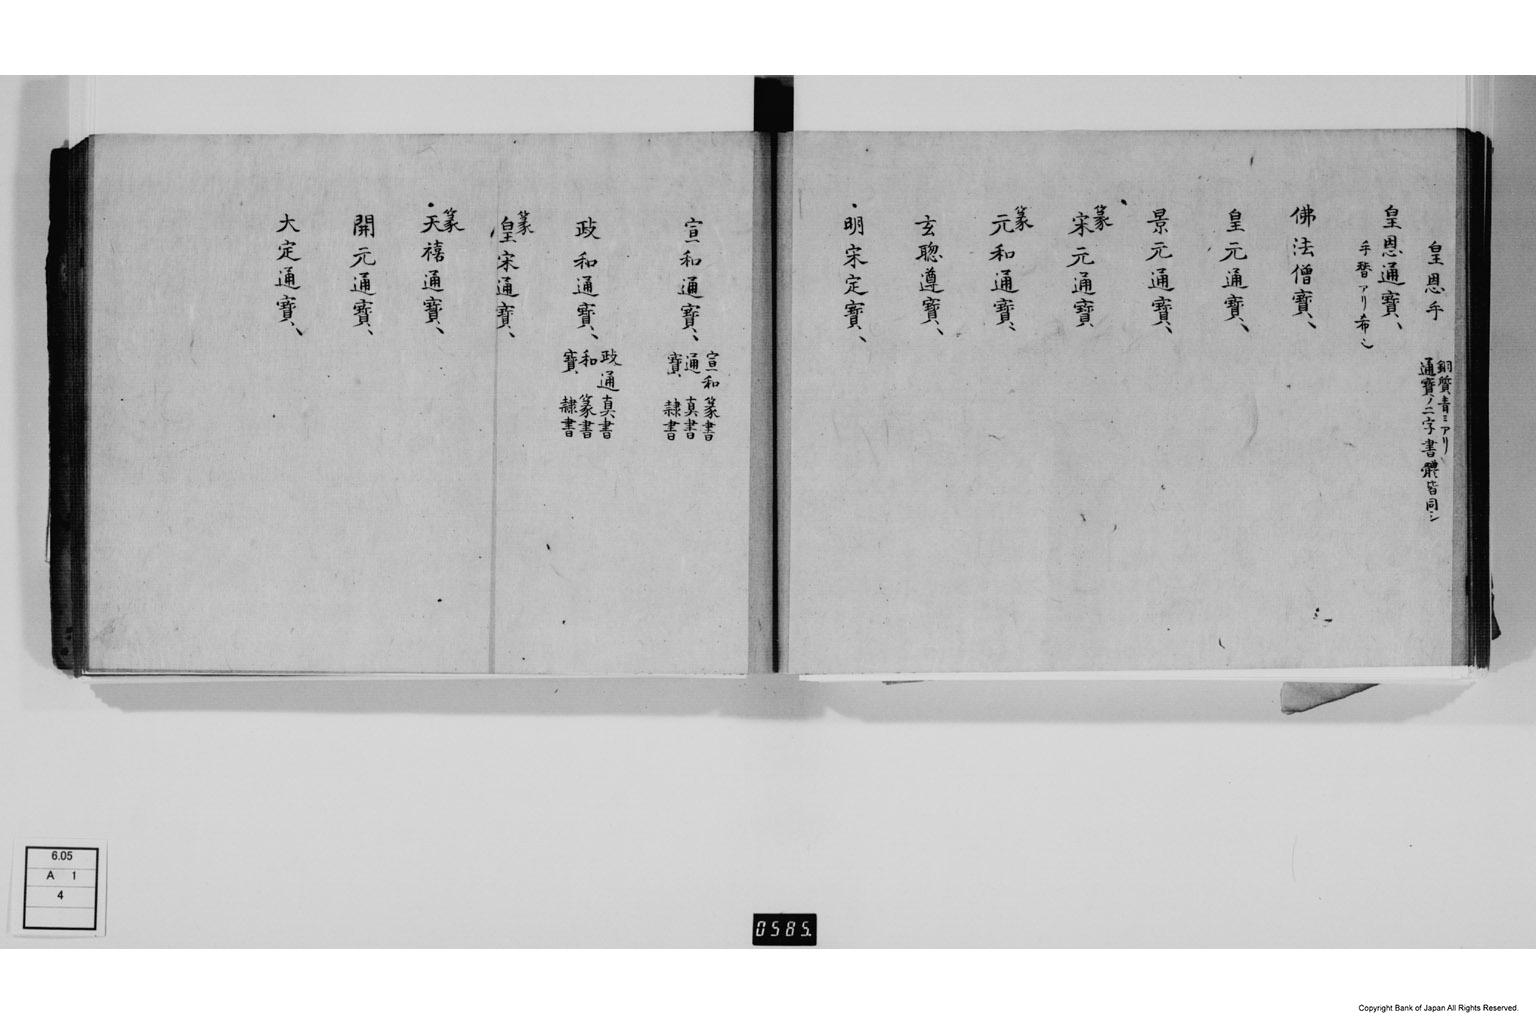 皇恩手
銅質青ミアリ
通寳ノ二字書體皆同シ
皇恩通寳、
手替アリ希シ
佛法僧寳、
皇元通寳、
景元通寳、
篆
宋元通寳
篆
元和通寳、
玄聰遵寳、
明宋定寳、
宣和通寳、
宣和 篆書
通 真書
寳、 隷書
政和通寳、
政通 真書
和 篆書
寳、 隷書
篆
皇宋通寳、
篆
天禧通寳、
開元通寳、
大定通寳、
6.05
A 1
4
0585.
Copyright Bank of Japan All Rights Reserved.